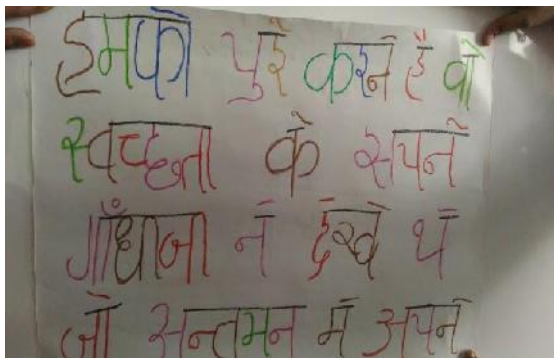 हमको पुरे करने है वो
स्वच्छता के सपने
गाँधीजी ने देखे थे
जो अन्तमन में अपने